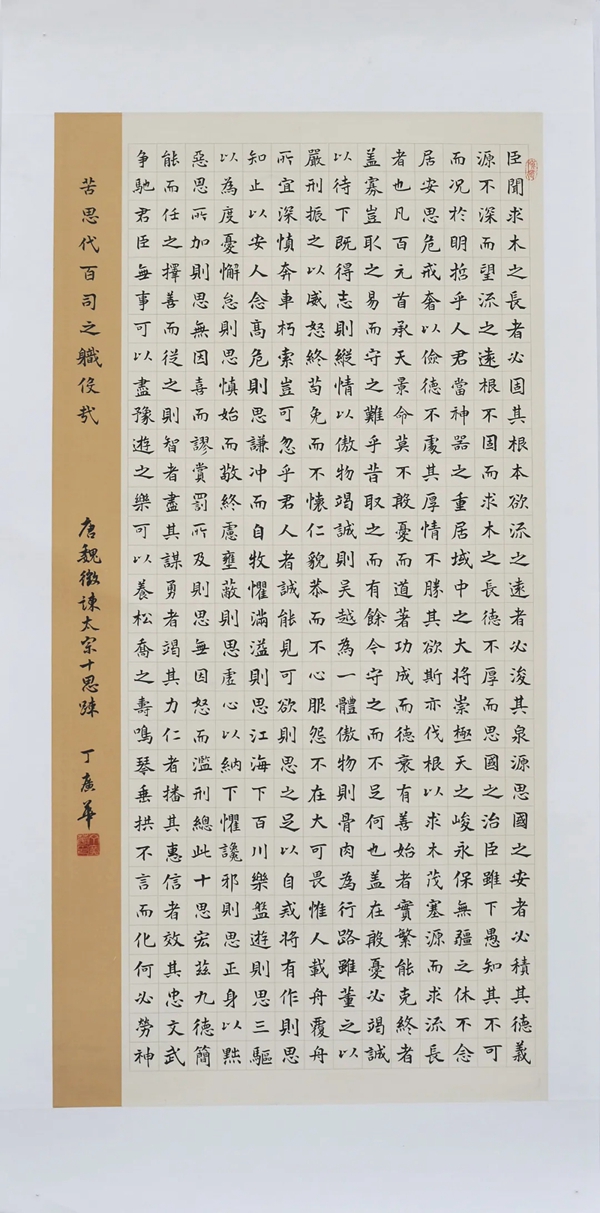 臣聞求木之長者必固其根本欲流之遠者必浚其泉源思國之安者必積其德義
源不深而望流之遠根不固而求木之長德不厚而思國之治臣雖下愚知其不可
而况於明哲乎人君當神器之重居域中之大將崇極天之峻永保無疆之休不念
居安思危戒奢以儉德不處其厚情不勝其欲斯亦伐根以求木茂塞源而求流長
者也凡百元首承天景命莫不殷憂而道著功成而德衰有善始者實繁能克終者
盖寡豈取之易而守之難乎昔取之而有餘今守之而不足何也盖在殷憂必竭誠
以待下既得志則縱情以傲物竭誠則吴越為一體傲物則骨肉為行路雖董之以
嚴刑振之以威怒終苟免而不懷仁貌恭而不心服怨不在大可畏惟人載舟覆舟
所宜深慎奔車朽索豈可忽乎君人者誠能見可欲則思之足以自戒將有作則思
知止以安人念高危則思謙冲而自牧懼滿溢則思江海下百川樂盤遊則思三驅
以為度憂懈怠則思慎始而敬終慮壅蔽則思虛心以納下懼讒邪則思正身以黜
惡思所加則思無因喜而謬賞罰所及則思無因怒而濫刑總此十思宏茲九德簡
能而任之擇善而從之則智者盡其謀勇者竭其力仁者播其惠信者效其忠文武
争馳君臣無事可以盡豫遊之樂可以養松喬之壽鳴琴垂拱不言而化何必勞神
苦思代百司之職役哉
唐魏徵諫太宗十思疏 丁廣華